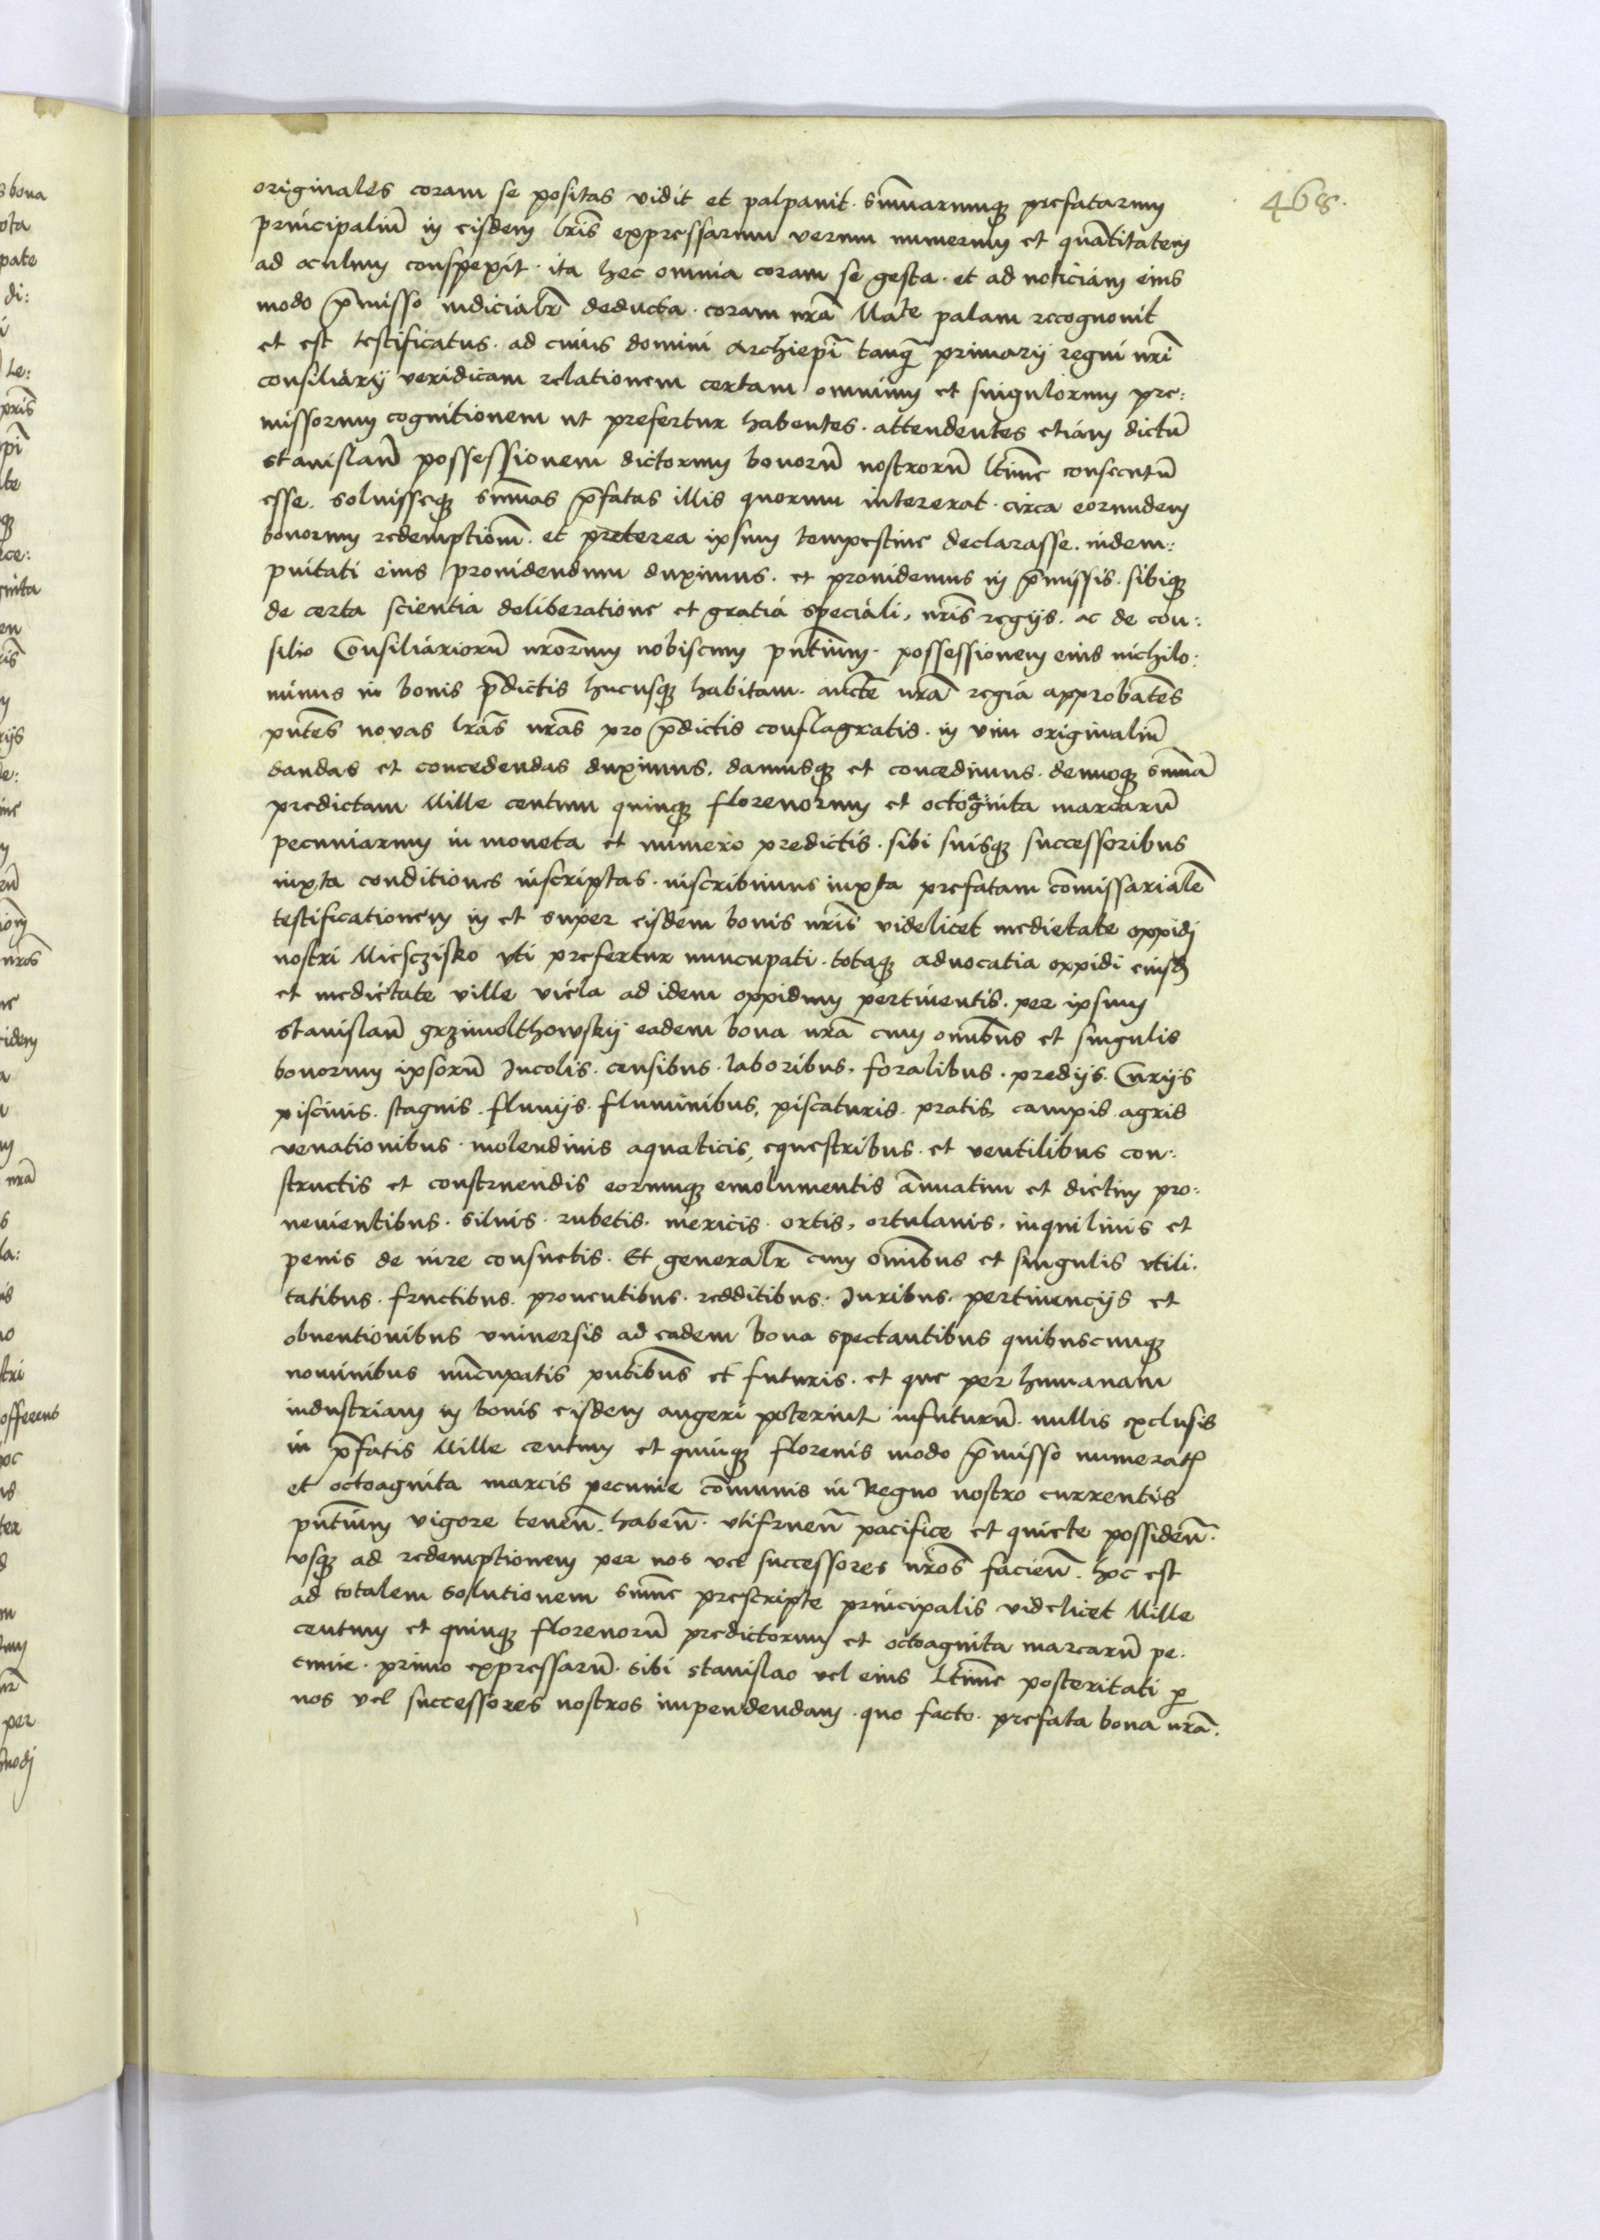 468.
originales coram se positas vidit et palpauit. sum̄arumqꝫ prefatarum
principaliū in eisdem lr̄is expressarum verum numerum et quātitatem
ad oculum conspexit. ita hec omnia coram se gesta. et ad noticiam eius
modo p̄misso iudicialr̄ deducta. coram nrā Mate palam recognouit
et est testificatus. ad cuius domini Archiepī tanq̄ primarij regni nrī
consiliarij veridicam relationem certam omnium et singulorum pre:
missorum cognitionem ut prefertur habentes. attendentes etiam dictū
stanislaū possessionem dictorum bonorū nostrorū ltīme consecutū
esse. soluisseqꝫ sum̄as p̄fatas illis quorum intererat. circa eorundem
bonorum redemptiom̄. et preterea ipsum tempestiue declarasse. indem:
pnitati eius prouidendum duximus. et prouidemus in p̄missis. sibiqꝫ
de certa scientia deliberatione et gratia speciali, nrīs regijs. ac de con:
silio Consiliariorū nrōrum nobiscum pn̄tium. possessionem eius nichilo:
minus in bonis p̄dictis hucusqꝫ habitam. aucte nrā regia approbātes
pn̄tes nouas lrās nrās pro p̄dictis conflagratis. in vim originaliū
dandas et concedendas duximus. damusqꝫ et concedimus. denuoqꝫ sum̄ā
predictam Mille centum quinqꝫ florenorum et octoaginta marcarū
pecuniarum in moneta et numero predictis. sibi suisqꝫ successoribus
iuxta conditiones inscriptas. inscribimus iuxta prefatam com̄issarialē
testificationem in et super eisdem bonis nrīs videlicet medietate oppidj
nostri Miesczisko vti prefertur nuncupati. totaqꝫ aduocatia oppidi eiusd̄
et medietate ville viela ad idem oppidum pertinentis. per ipsum
stanislaū grzimolthowskij eadem bona nrā cum om̄ibus et singulis
bonorum ipsorū Incolis. censibus. laboribus. foralibus. predijs. Curijs
piscinis. stagnis. fluuijs. fluminibus, piscaturis. pratis, campis. agris
venationibus. molendinis aquaticis, equestribus. et ventilibus con:
structis et construendis eorumqꝫ emolumentis ānuatim et dietim pro:
uenientibus. siluis. rubetis. mericis. ortis, ortulanis, inquilinis et
penis de iure consuetis. Et generalr̄ cum om̄ibus et singulis vtili.
tatibus. fructibus. prouentibus. redditibus. Iuribus. pertinencijs et
obuentionibus vniuersis ad eadem bona spectantibus quibuscunqꝫ
nominibus nūcupatis pn̄tibus et futuris. et que per humanam
industriam in bonis eisdem augeri poterint infuturū. nullis exclusis
in p̄fatis Mille centum et quinqꝫ florenis modo p̄misso numerat̄
et octoaginta marcis pecunie com̄unis in Regno nostro currentis
pn̄tium vigore tenen̄. haben̄. vtifruen̄ pacifice et quiete possiden̄.
vsqꝫ ad redemptionem per nos vel successores nrōs facien̄. hoc est
ad totalem solutionem sum̄e prescripte principalis videlicet Mille
centum et quinqꝫ florenorū predictorum et octoaginta marcarū pe.
cunie. primo expressarū. sibi stanislao vel eius ltīme posteritati ꝑ
nos vel successores nostros impendendam. quo facto. prefata bona nrā.